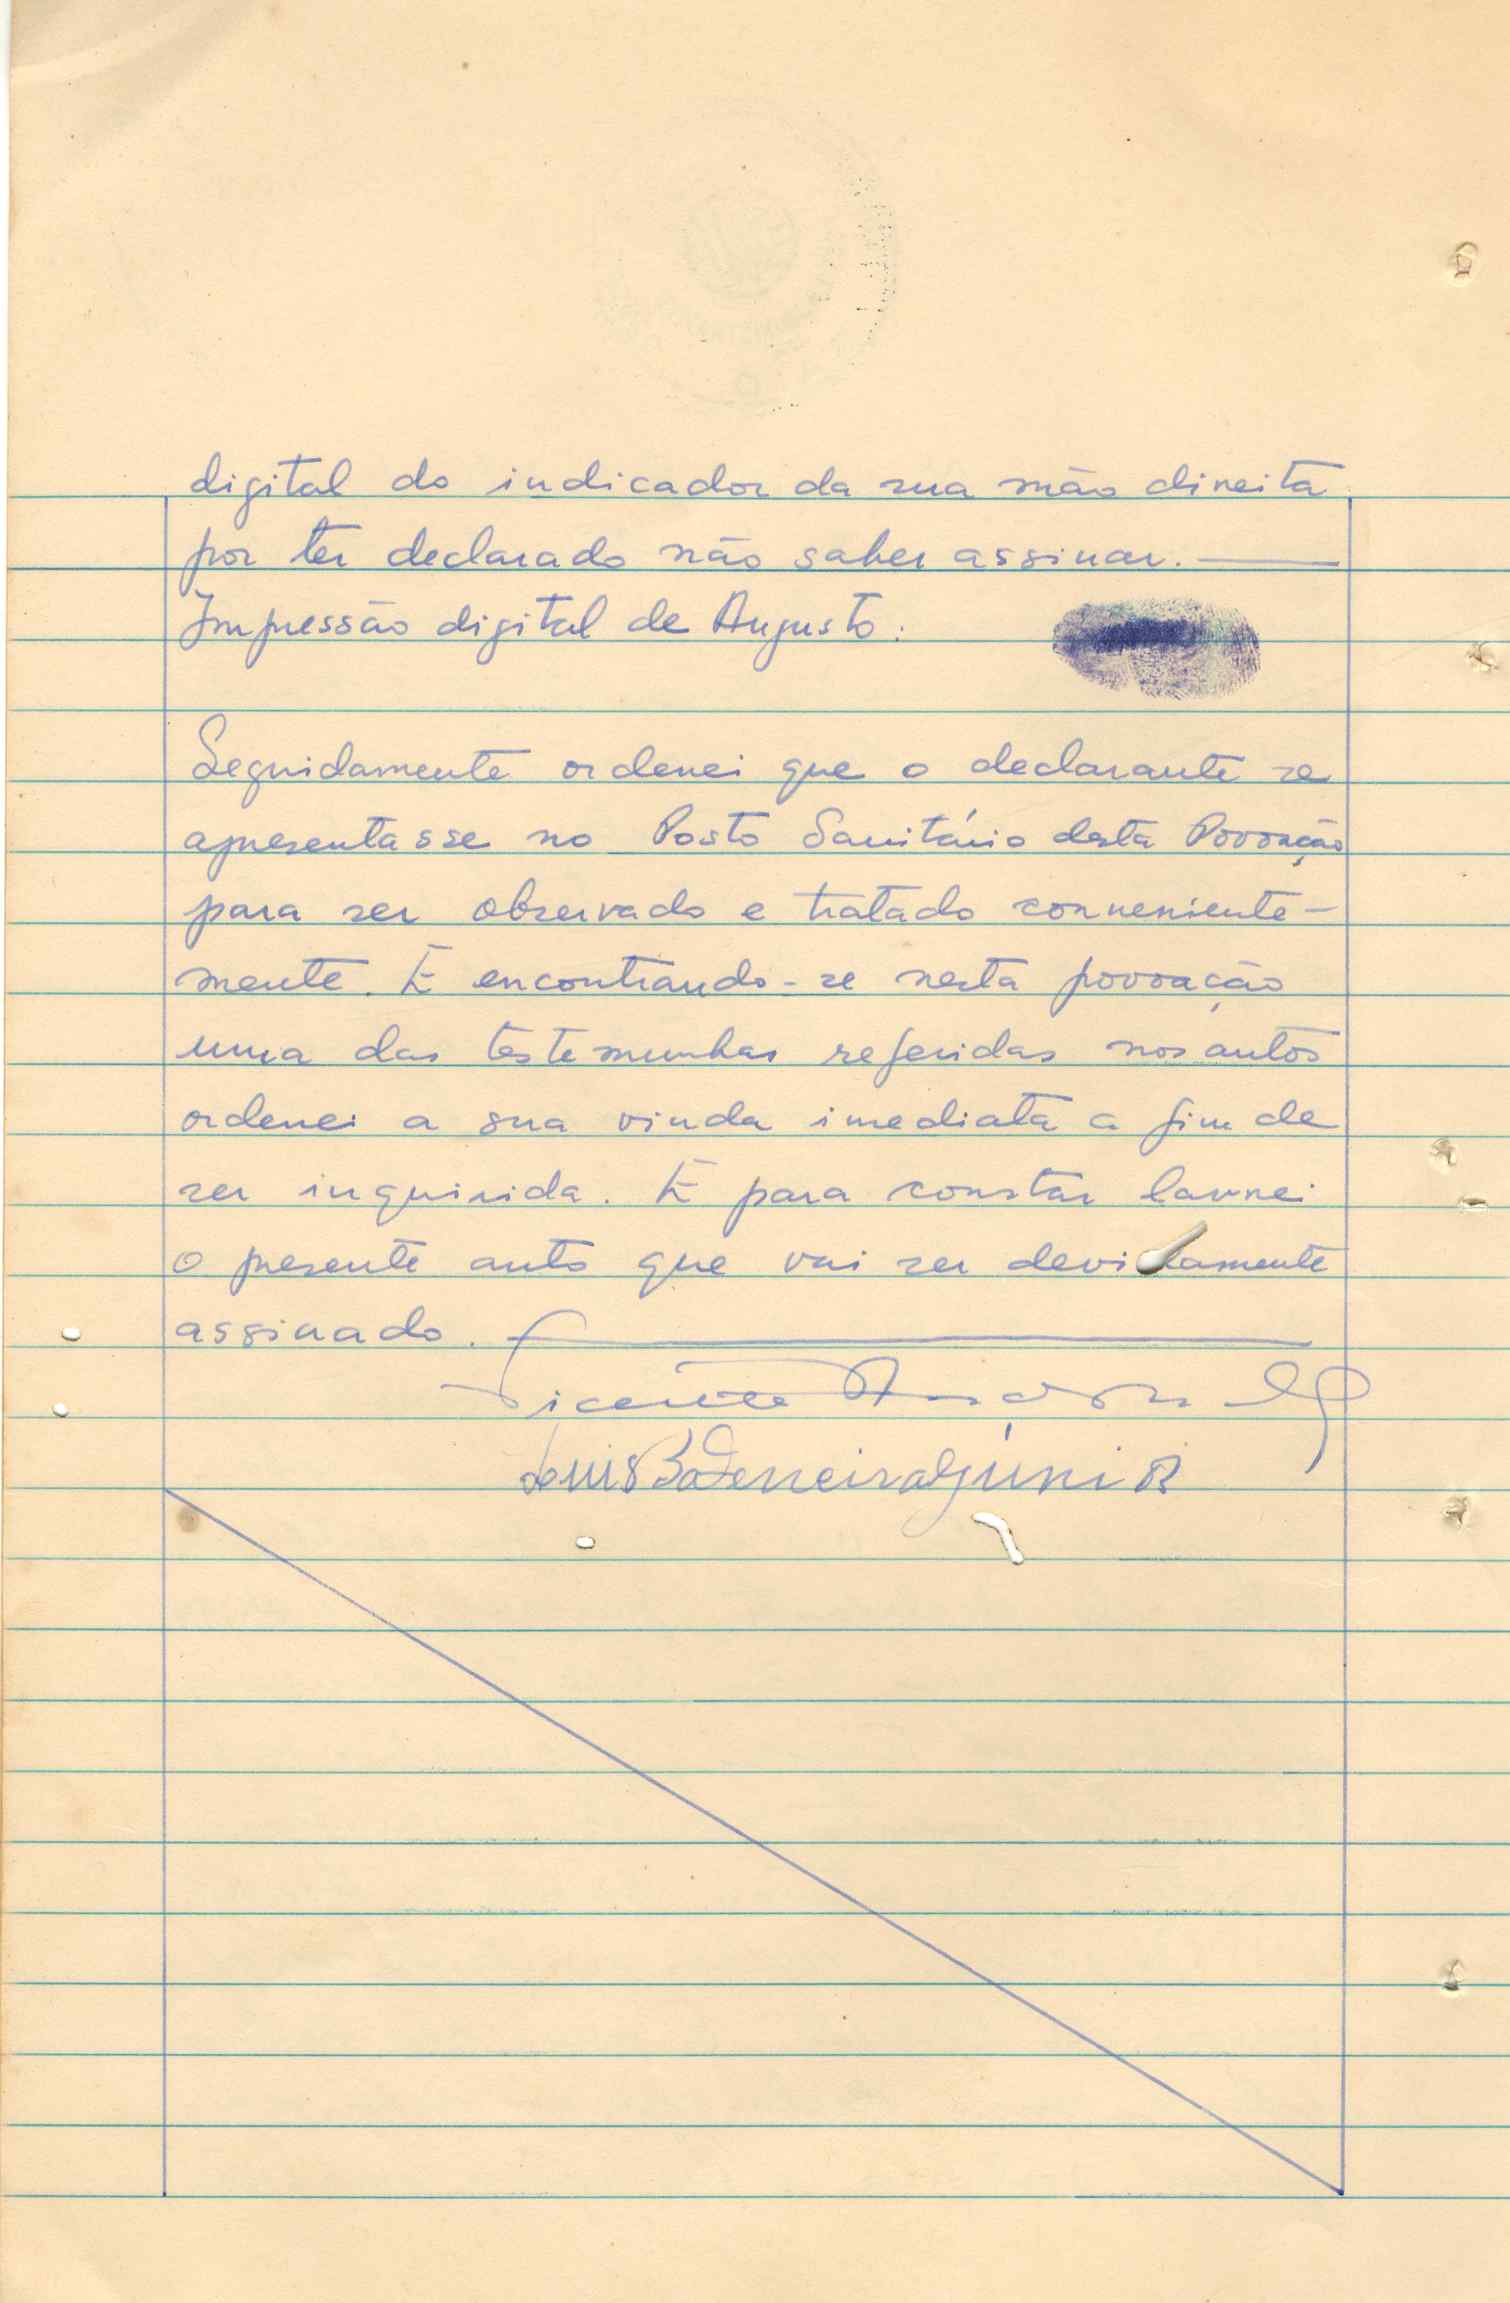 digital do indicador da sua mão direita
por ter declarado não saber assinar.
Impressão digital de Augusto:
Seguidamente ordenei que o declarante se
apresentasse no Posto Sanitário desta Povoação
para ser observado e tratado conveniente-
mente. E encontrando-se nesta povoação
uma das testemunhas referidas nos autos
ordenei a sua vinda imediata a fim de
ser inquirida. E para constar lavrei
o presente auto que vai ser devidamente
assinado.
Vicente
Luis Júnior